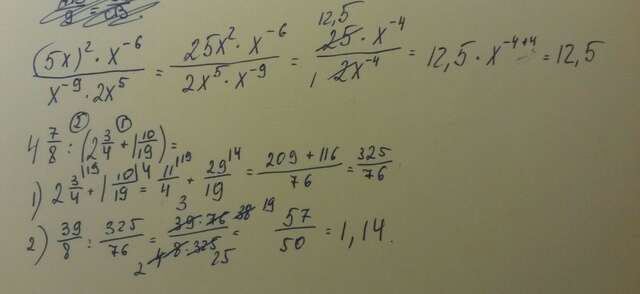 (5x)² · x⁻⁶ / x⁻⁹ · 2x⁵ = 25x² · x⁻⁶ / 2x⁵ · x⁻⁹ = 12,5 25 · x⁻⁴ / 1 2x⁻⁴ = 12,5 · x⁻⁴⁺⁴ = 12,5
② ①
4 7/8 : (2 3/4 + 1 10/19) =
1) 2 3/4 + 1 10/19 = 11/4 + 29/19 = 209 + 116 / 76 = 325/76
2) 39/8 : 325/76 = 39 · 76 / 8 · 325 = 57/50 = 1,14.